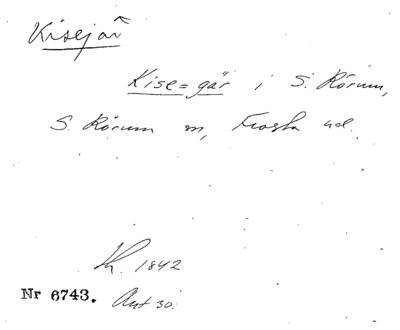 Kisejär
Kise=gär i S. Rörum,
S. Rörum sn, Frosta hd.
Kr. 1842
Nr 6743. Ant 30.